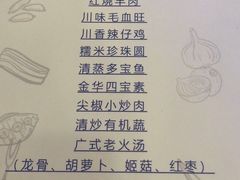 红烧羊肉
川味毛血旺
川香辣仔鸡
糯米珍珠圆
清蒸多宝鱼
金华四宝素
尖椒小炒肉
清炒有机蔬
广式老火汤
（龙骨、胡萝卜、姬菇、红枣）